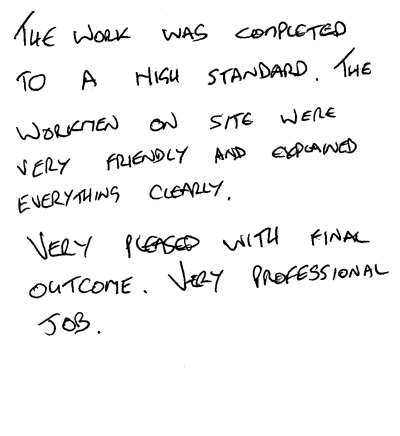 THE WORK WAS COMPLETED
TO A HIGH STANDARD. THE
WORKMEN ON SITE WERE
VERY FRIENDLY AND EXPLAINED
EVERYTHING CLEARLY.
VERY PLEASED WITH FINAL
OUTCOME. VERY PROFESSIONAL
JOB.